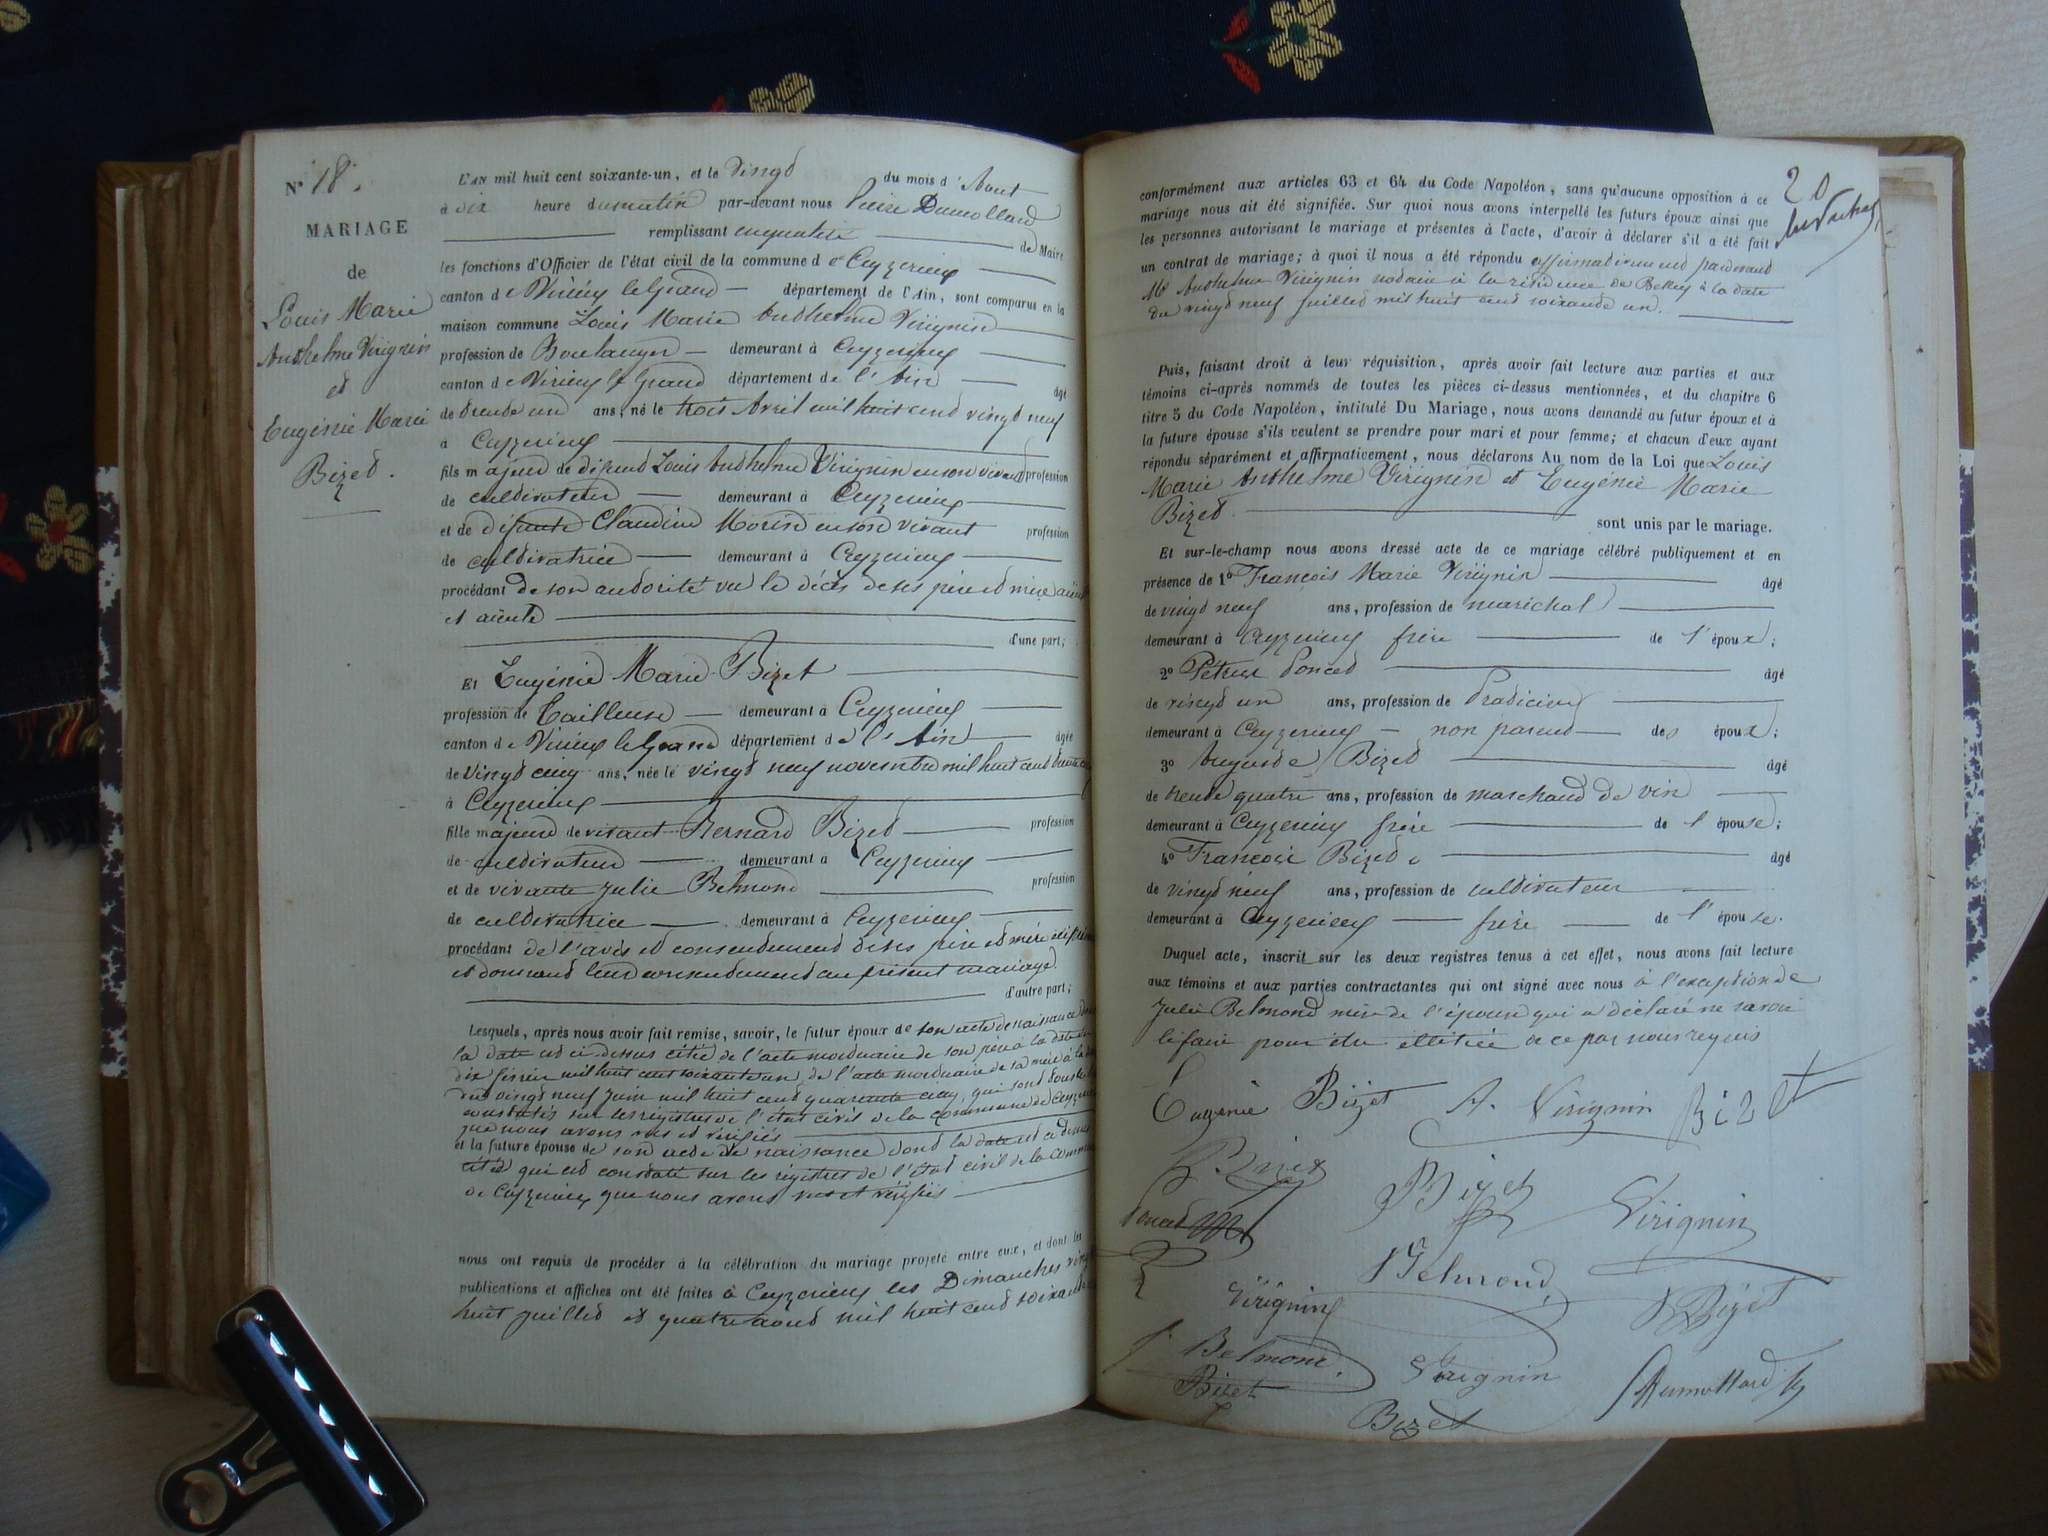 N° 18.
MARIAGE
de
Louis Marie
Anthelme Virignin
et
Eugénie Marie
Bizet.
L'AN mil huit cent soixante-un, et le vingt du mois d'Aout
à dix heure du matin par-devant nous Pierre Dumollard
remplissant en qualité de Maire
les fonctions d'Officier de l'état civil de la commune de Ceyzerieu
canton de Virieu le Grand département de l'Ain, sont comparus en la
maison commune Louis Marie Anthelme Virignin
profession de Boulanger demeurant à Ceyzerieu
canton de Virieu le Grand département de l'Ain âgé
de trente un ans, né le trois Avril mil huit cent vingt neuf
à Ceyzerieu
fils majeur de défunt Louis Anthelme Virignin en son vivant profession
de cultivateur demeurant à Ceyzerieu
et de défunte Claudine Morin en son vivant profession
de cultivatrice demeurant à Ceyzerieu
procédant de son autorité vu le décès de ses père et mère aïeul
et aïeule
d'une part;
Et Eugénie Marie Bizet
profession de Tailleuse demeurant à Ceyzerieu
canton de Virieu le Grand département de l'Ain âgée
de vingt cinq ans, née le vingt neuf novembre mil huit cent trente cinq
à Ceyzerieu
fille majeure de vivant Bernard Bizet profession
de cultivateur demeurant à Ceyzerieu
et de vivante Julie Belmond profession
de cultivatrice demeurant à Ceyzerieu
procédant de l'avis et consentement de ses père et mère ici présents
et donnant leur consentement au présent mariage.
d'autre part;
Lesquels, après nous avoir fait remise, savoir, le futur époux de son acte de naissance dont
la date est ci-dessus citée de l'acte mortuaire de son père à la date du
dix février mil huit cent soixante un, de l'acte mortuaire de sa mère à la date
du vingt neuf Juin mil huit cent quarante cinq, qui sont tous
constatés sur les registres de l'état civil de la commune de Ceyzerieu
que nous avons vus et vérifiés
et la future épouse de son acte de naissance dont la date est ci dessus
citée qui est constaté sur les régistres de l'état civil de la commune
de Ceyzerieu que nous avons vus et vérifiés
nous ont requis de procéder à la célébration du mariage projeté entre eux, et dont les
publications et affiches ont été faites à Ceyzerieu les Dimanches vingt
huit juillet et quatre aout mil huit cent soixante
20
conformément aux articles 63 et 64 du Code Napoléon, sans qu'aucune opposition à ce
mariage nous ait été signifiée. Sur quoi nous avons interpellé les futurs époux ainsi que
les personnes autorisant le mariage et présentes à l'acte, d'avoir à déclarer s'il a été fait
un contrat de mariage; à quoi il nous a été répondu affirmativement pardevant
Me Anthelme Virignin notaire à la résidence de Belley à la date
du vingt neuf juillet mil huit cent soixante un.
Puis, faisant droit à leur réquisition, après avoir fait lecture aux parties et aux
témoins ci-après nommés de toutes les pièces ci-dessus mentionnées, et du chapitre 6
titre 5 du Code Napoléon, intitulé Du Mariage, nous avons demandé au futur époux et à
la future épouse s'ils veulent se prendre pour mari et pour femme; et chacun d'eux ayant
répondu séparément et affirmativement, nous déclarons Au nom de la Loi que Louis
Marie Anthelme Virignin et Eugénie Marie
Bizet sont unis par le mariage.
Et sur-le-champ nous avons dressé acte de ce mariage célébré publiquement et en
présence de 1° François Marie Virignin âgé
de vingt neuf ans, profession de marechal
demeurant à Ceyzerieu frère de l'époux;
2° Pétrus Poncet âgé
de vingt un ans, profession de Praticien
demeurant à Ceyzerieu non parent des époux;
3° Auguste Bizet âgé
de trente quatre ans, profession de marchand de vin
demeurant à Ceyzerieu frère de l'épouse;
4° François Bizet âgé
de vingt neuf ans, profession de cultivateur
demeurant à Ceyzerieu frère de l'épouse.
Duquel acte, inscrit sur les deux registres tenus à cet effet, nous avons fait lecture
aux témoins et aux parties contractantes qui ont signé avec nous à l'exception de
Julie Belmond mère de l'épouse qui a déclaré ne savoir
le faire pour être illitrée de ce par nous requis
Eugenie Bizet A. Virignin Bizet
Poncet Bizet Virignin
Virignin Belmond Bizet
Belmond Virignin Dumollard
Bizet Bizet